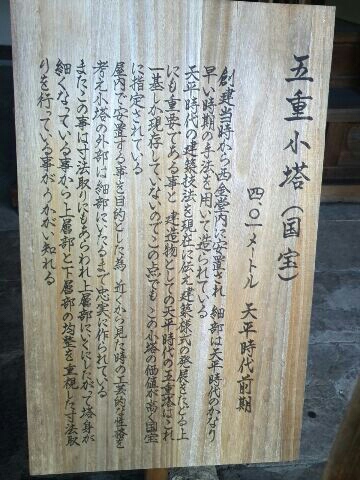 五重小塔(国宝)
四.〇一メートル 天平時代前期
創建当時から西金堂内に安置され 細部は天平時代のかなり
早い時期の手法を用いて造られている
天平時代の建築技法を現在に伝え建築様式の発展をたどる上
にも重要である事と 建造物としての天平時代の五重塔はこれ
一基しか現存していないのでこの点でも この小塔の価値が高く国宝
に指定されている
屋内で安置する事を目的とした為 近くから見た時の工芸的な性格を
考え小塔の外部は細部にいたるまで忠実に作られている
またこの事は寸法取りにもあらわれ上層部にいくにしたがって塔身が
細くなっている事から上層部と下層部の均整を重視した寸法取
りを行っている事がうかがい知れる